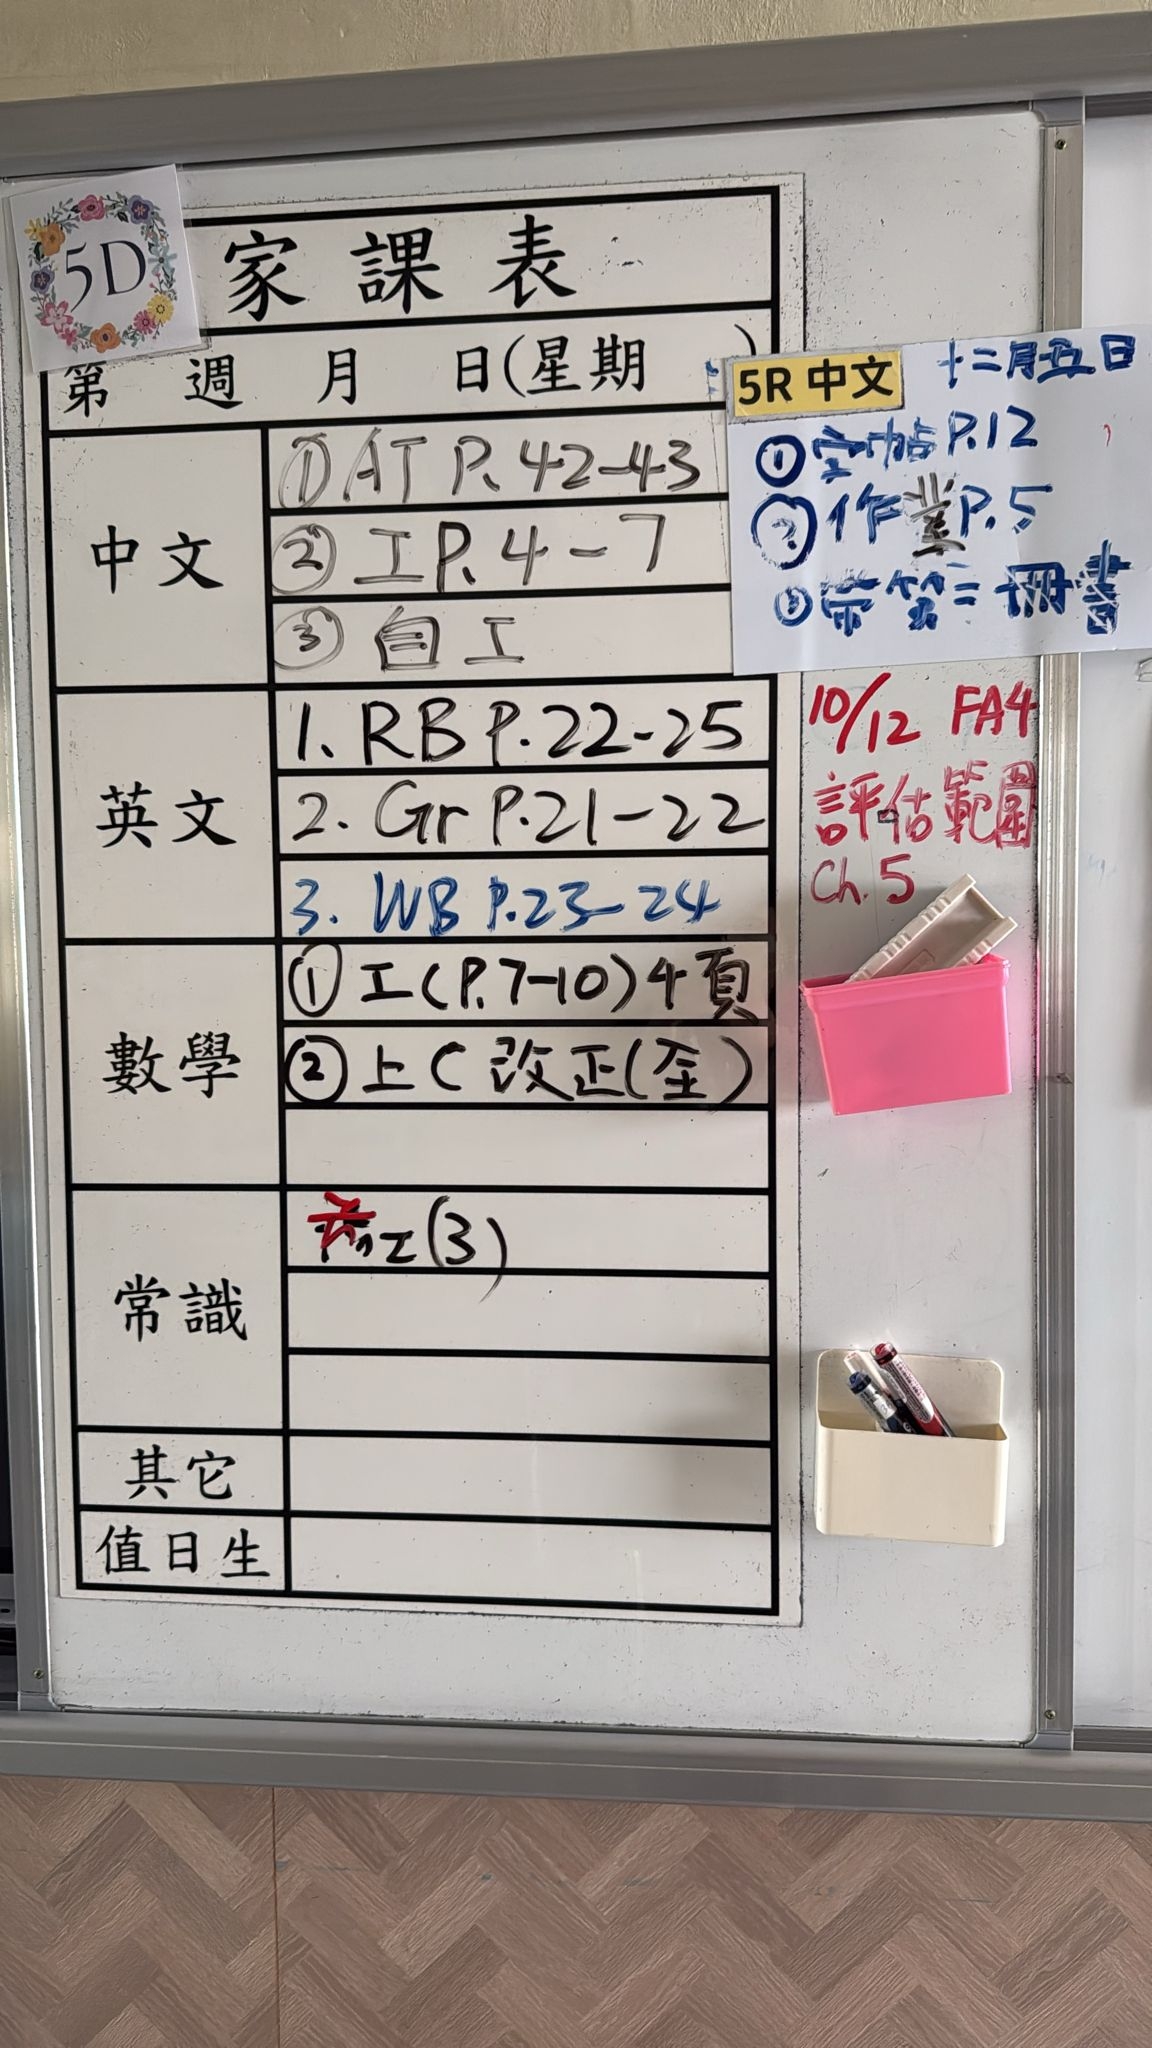 5D
家課表
第 週 月 日(星期 )
中文
① AT P.42-43
② 工P.4-7
③ 自工
英文
1. RB P.22-25
2. Gr P.21-22
3. WB P.23-24
數學
① 工(P.7-10)4頁
② 上C 改正(全)
常識
工(3)
其它
值日生
5R 中文
十二月五日
① P.12
② 作業P.5
③ 帶第二冊書
10/12 FA4
評估範圍
Ch.5